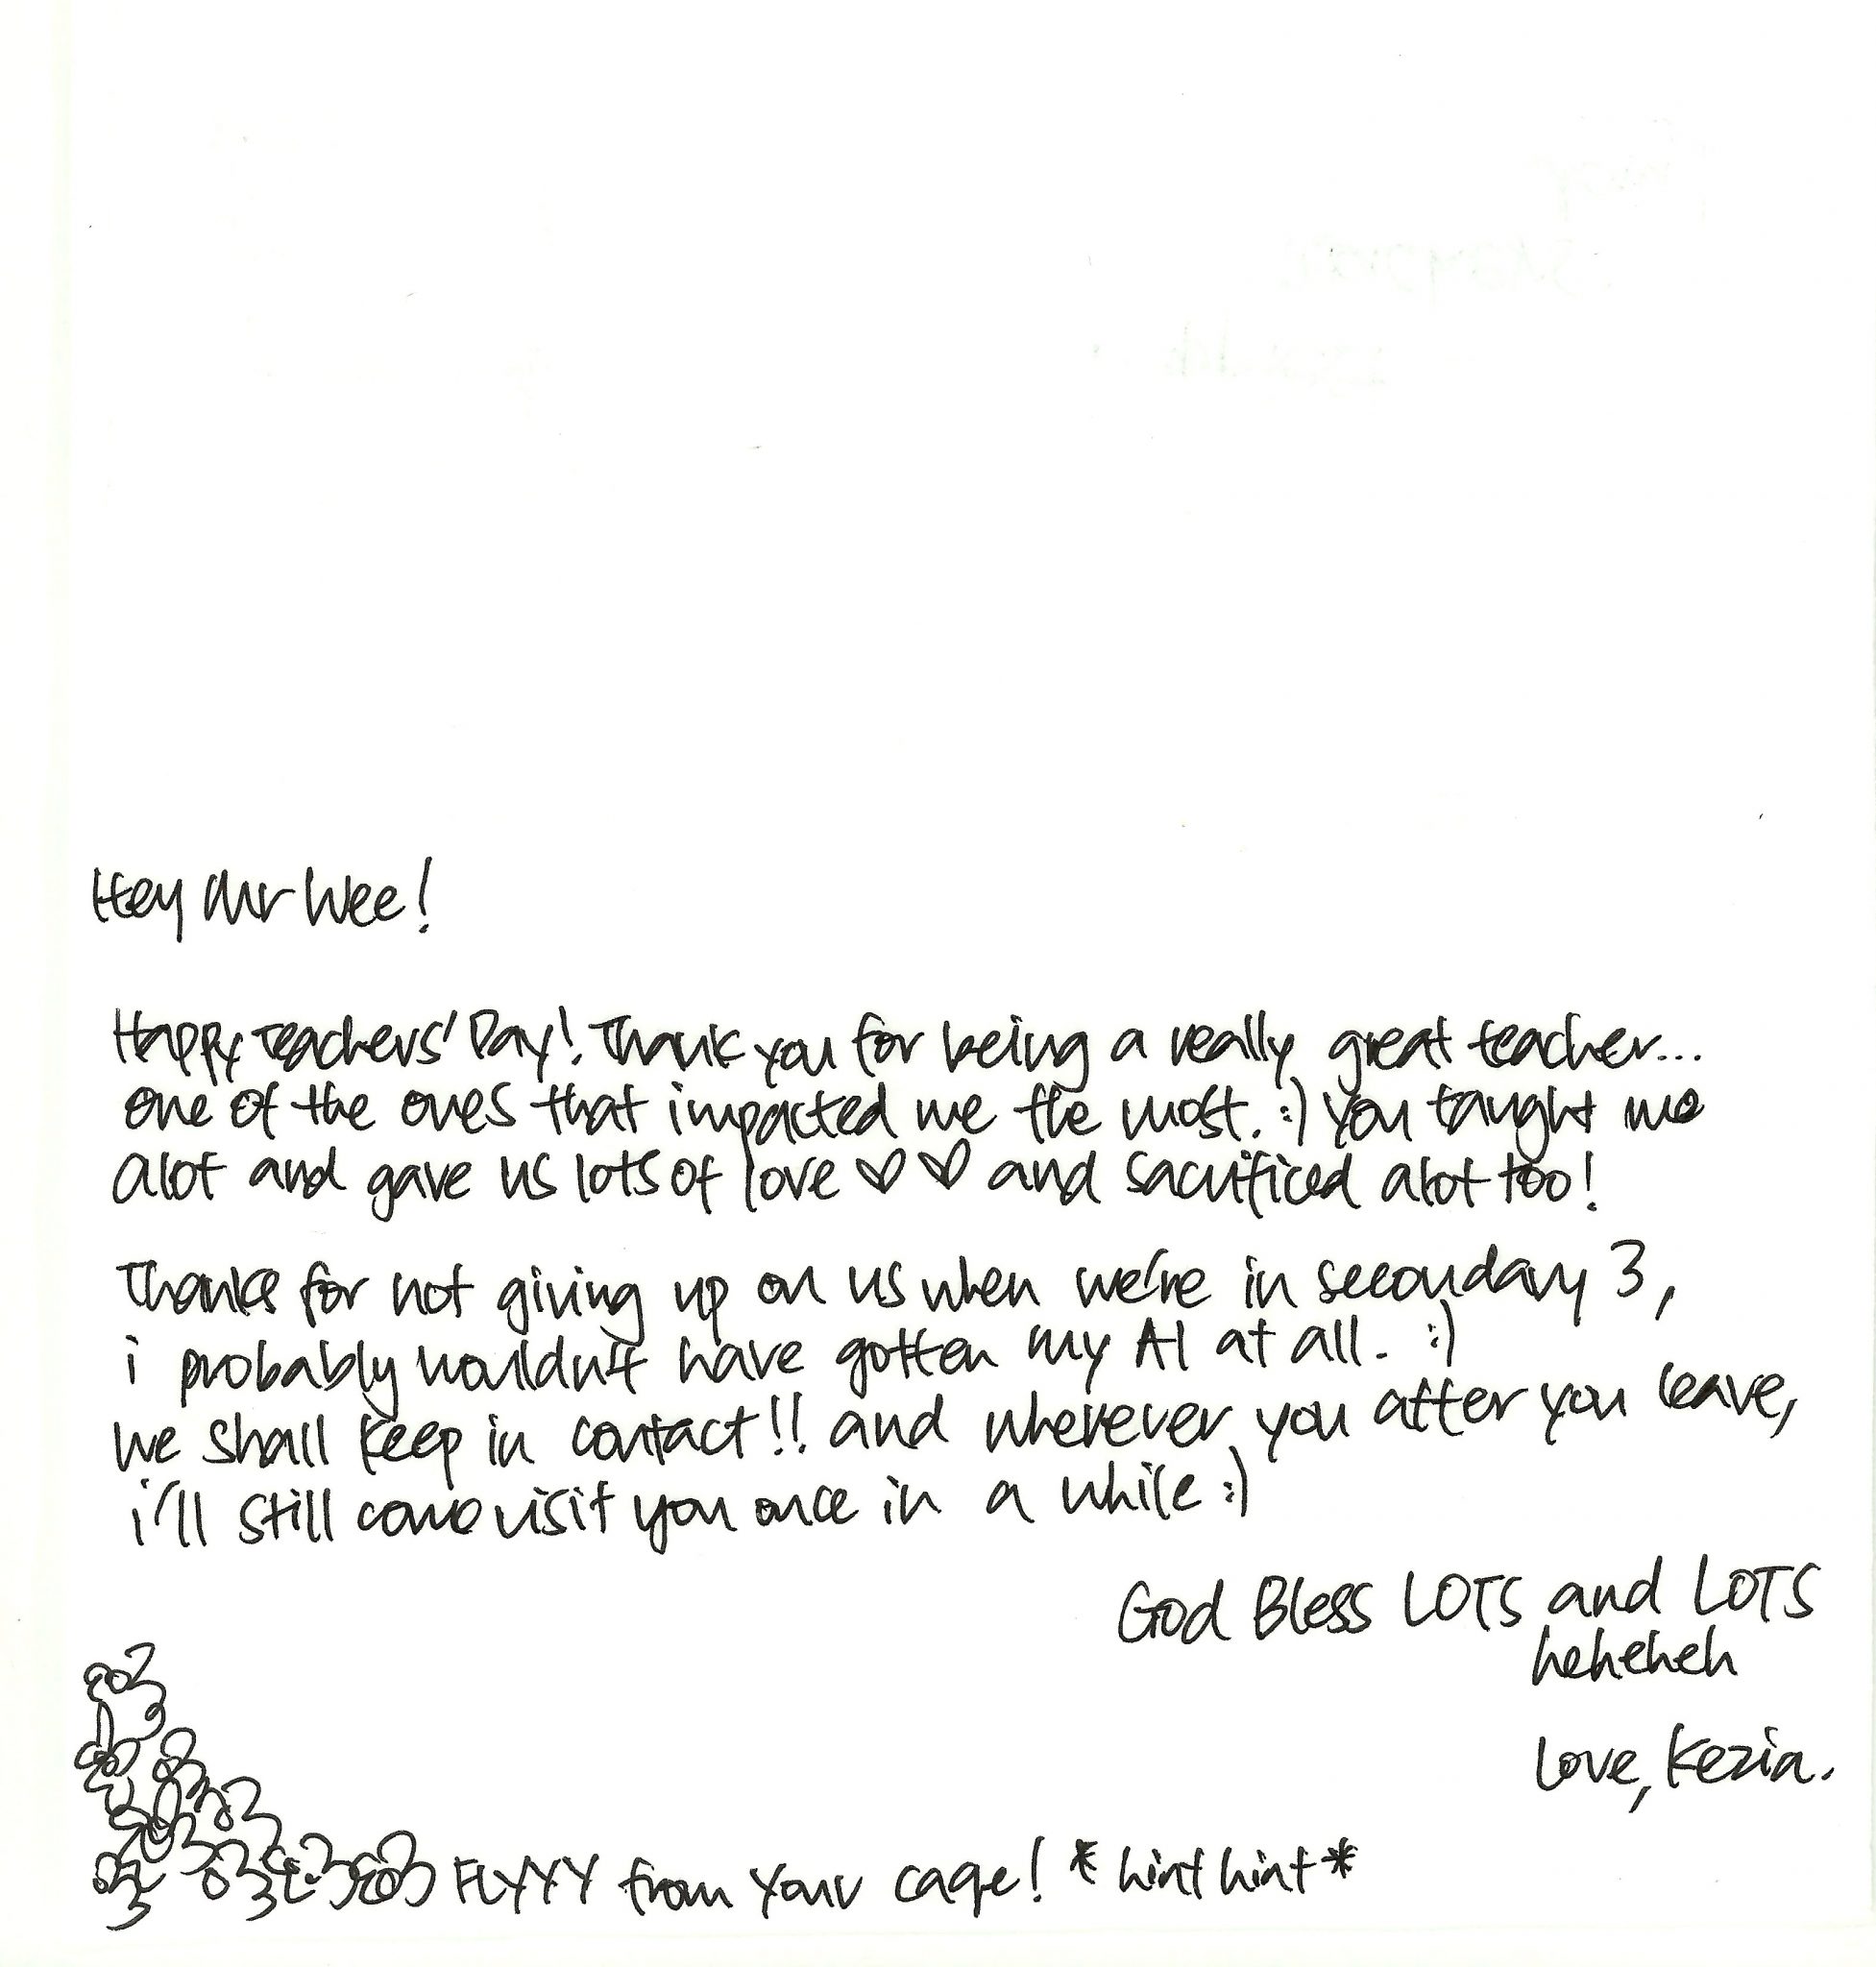 Hey Mr Wee!
Happy Teachers' Day! Thank you for being a really great teacher...
one of the ones that impacted me the most. :) You taught me
alot and gave us lots of love ♡ ♡ and sacrificed alot too!
Thanks for not giving up on us when we're in secondary 3,
i probably wouldn't have gotten my A1 at all. :)
we shall keep in contact!! and wherever you after you leave,
i'll still come visit you once in a while :)
God Bless LOTS and LOTS
heheheh
Love, Kezia.
FLYYY from your cage! *hint hint*